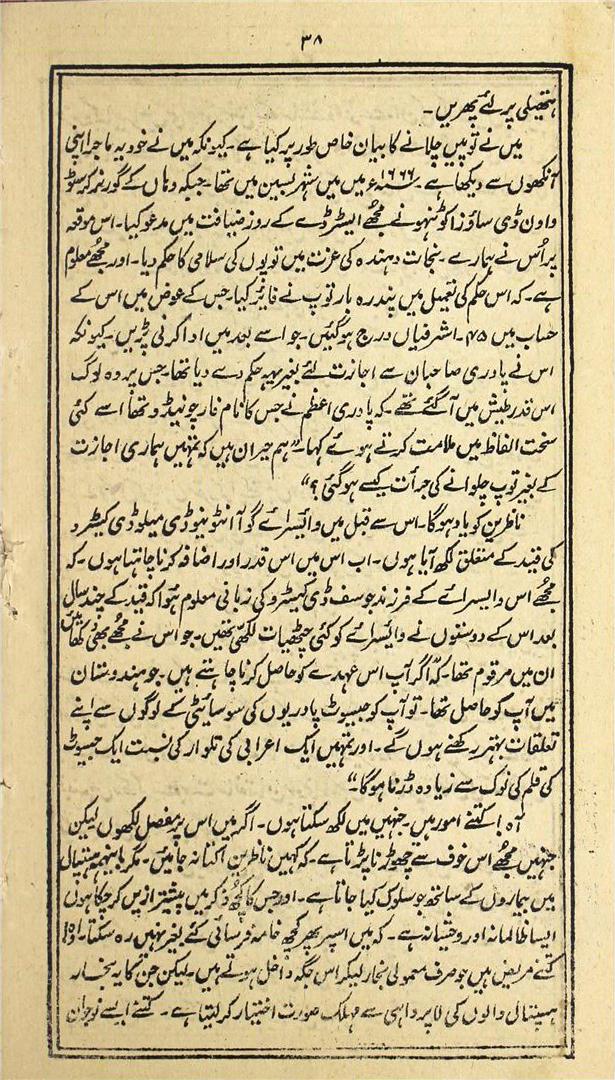 ۳۸
ہتھیلی پر لئے پھریں ۔
میں نے توپیں چلانے کا بیان خاص طور پر کیا ہے ۔ کیونکہ میں نے خود یہ ماجرا اپنی
آنکھوں سے دیکھا ہے ۔ ۱۶۶۶ء میں میں شہر بسین میں تھا ۔ جبکہ وہاں کے گورنر کرسٹو
واون ڈی ساؤزا کوٹنہونے مجھے ایسٹر ڈے کے روز ضیافت میں مدعو کیا ۔ اس موقعہ
پر اُس نے ہمارے نجات دہندہ کی عزت میں توپوں کی سلامی کا حکم دیا ۔ اور مجھے معلوم
ہے ۔ کہ اس حکم کی تعمیل میں پندرہ بار توپ نے فائیر کیا ۔ جس کے عوض میں اس کے
حساب میں ۷۵ ۔ اشرفیاں درج ہوگئیں ۔ جو اسے بعد میں ادا کرنی پڑیں ۔ کیونکہ
اس نے پادری صاحبان سے اجازت لئے بغیر یہہ حکم دے دیا تھا ۔ جس پر وہ لوگ
اس قدر طیش میں آ گئے تھے ۔ کہ پادری اعظم نے جس کا نام فارچونیڈو تھا اسے کئی
سخت الفاظ میں ملامت کرتے ہوئے کہا ۔ "ہم حیران ہیں کہ تمہیں ہماری اجازت
کے بغیر توپ چلوانے کی جرأت کیسے ہوگئی ؟"
ناظرین کو یاد ہوگا ۔ اس سے قبل میں وائیسرائے گوآ انٹونیو ڈی میلو ڈی کیٹرو
کی قید کے متعلق لکھ آیا ہوں ۔ اب اس میں اس قدر اور اضافہ کرنا چاہتا ہوں ۔ کہ
مجھے اس وایسرائے کے فرزند یوسف ڈی کیسٹرو کی زبانی معلوم ہوا کہ قید کے چند سال
بعد اس کے دوستوں نے وائیسرائے کو کئی چٹھیات لکھی تھیں ۔ جو اس نے مجھے بھی دکھائیں
ان میں مرقوم تھا ۔ کہ "اگر آپ اس عہدے کو حاصل کرنا چاہتے ہیں ۔ جو ہندوستان
میں آپ کو حاصل تھا ۔ تو آپ کو جیسوٹ پادریوں کی سوسائیٹی کے لوگوں سے اپنے
تعلقات بہتر رکھنے ہوں گے ۔ اور تمہیں ایک اعرابی کی تلوار کی نسبت ایک جیسوٹ
کی قلم کی نوک سے زیادہ ڈرنا ہوگا ۔"
آہ ! کتنے امور ہیں ۔ جنہیں میں لکھ سکتا ہوں ۔ اگر میں اس پر مفصل لکھوں لیکن
جنہیں مجھے اس خوف سے چھوڑنا پڑتا ہے ۔ کہ کہیں ناظرین اکتا نہ جائیں ۔ مگر باینہمہ ہسپتال
میں بیماروں کے ساتھ جو سلوک کیا جاتا ہے ۔ اور جس کا کچھ ذکر میں پیشتر ازیں کر چکا ہوں
ایسا ظالمانہ اور وحشیانہ ہے ۔ کہ میں اسپر پھر کچھ خامہ فرسائی کئے بغیر نہیں رہ سکتا ۔ اوہ !
کتنے مریض ہیں جو صرف معمولی بخار لیکر اس جگہ داخل ہوتے ہیں ۔ لیکن جن کا یہ بخار
ہسپتال والوں کی لاپرواہی سے مہلک صورت اختیار کر لیتا ہے ۔ کتنے ایسے نوجوان